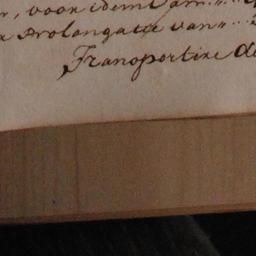 voor idem
Prolongatie van
Transportire de